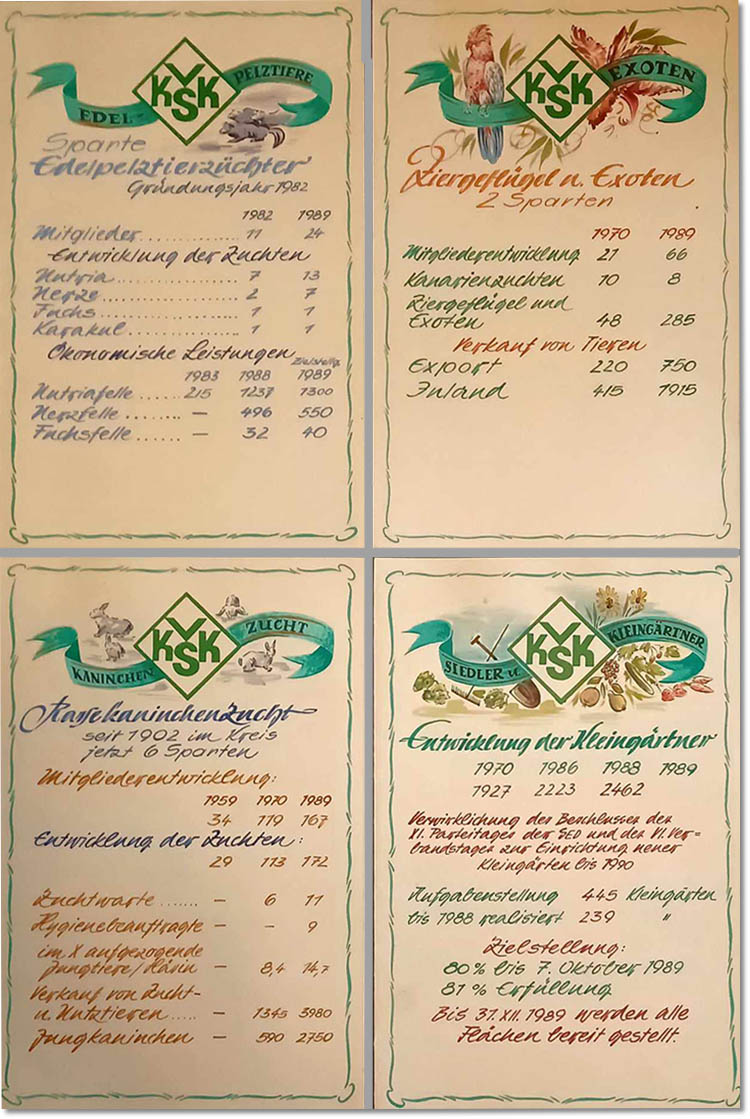 EDEL-
VKSK
PELZTIERE
Sparte
Edelpelztierzüchter
Gründungsjahr 1982
1982 1989
Mitglieder ............ 11 24
Entwicklung der Zuchten
Nutria ................ 7 13
Nerze ................ 2 7
Fuchs ................ 1 1
Karakul .............. 1 1
Ökonomische Leistungen Zielstellg.
1983 1988 1989
Nutriafelle ..... 215 1237 1300
Nerzfelle ........ — 496 550
Fuchsfelle ...... — 32 40
VKSK
EXOTEN
Ziergeflügel u. Exoten
2 Sparten
1970 1989
Mitgliederentwicklung 21 66
Kanarienzuchten 10 8
Ziergeflügel und
Exoten 48 285
Verkauf von Tieren
Export 220 750
Inland 415 1915
KANINCHEN
VKSK
ZUCHT
Rassekaninchenzucht
seit 1902 im Kreis
jetzt 6 Sparten
Mitgliederentwicklung:
1959 1970 1989
34 119 167
Entwicklung der Zuchten:
29 113 172
Zuchtwarte ....... — 6 11
Hygienebeauftragte — — 9
im X aufgezogende
Jungtiere/Häsin — 8,4 14,7
Verkauf von Zucht-
u. Nutztieren ..... — 1345 3980
Jungkaninchen — 590 2750
SIEDLER u.
VKSK
KLEINGÄRTNER
Entwicklung der Kleingärtner
1970 1986 1988 1989
1927 2223 2462
Verwirklichung der Beschlüsse des
XI. Parteitages der SED und des VI. Ver=
bandstages zur Einrichtung neuer
Kleingärten bis 1990
Aufgabenstellung 445 Kleingärten
bis 1988 realisiert 239 "
Zielstellung:
80% bis 7. Oktober 1989
81% Erfüllung
Bis 31. XII. 1989 werden alle
Flächen bereit gestellt.